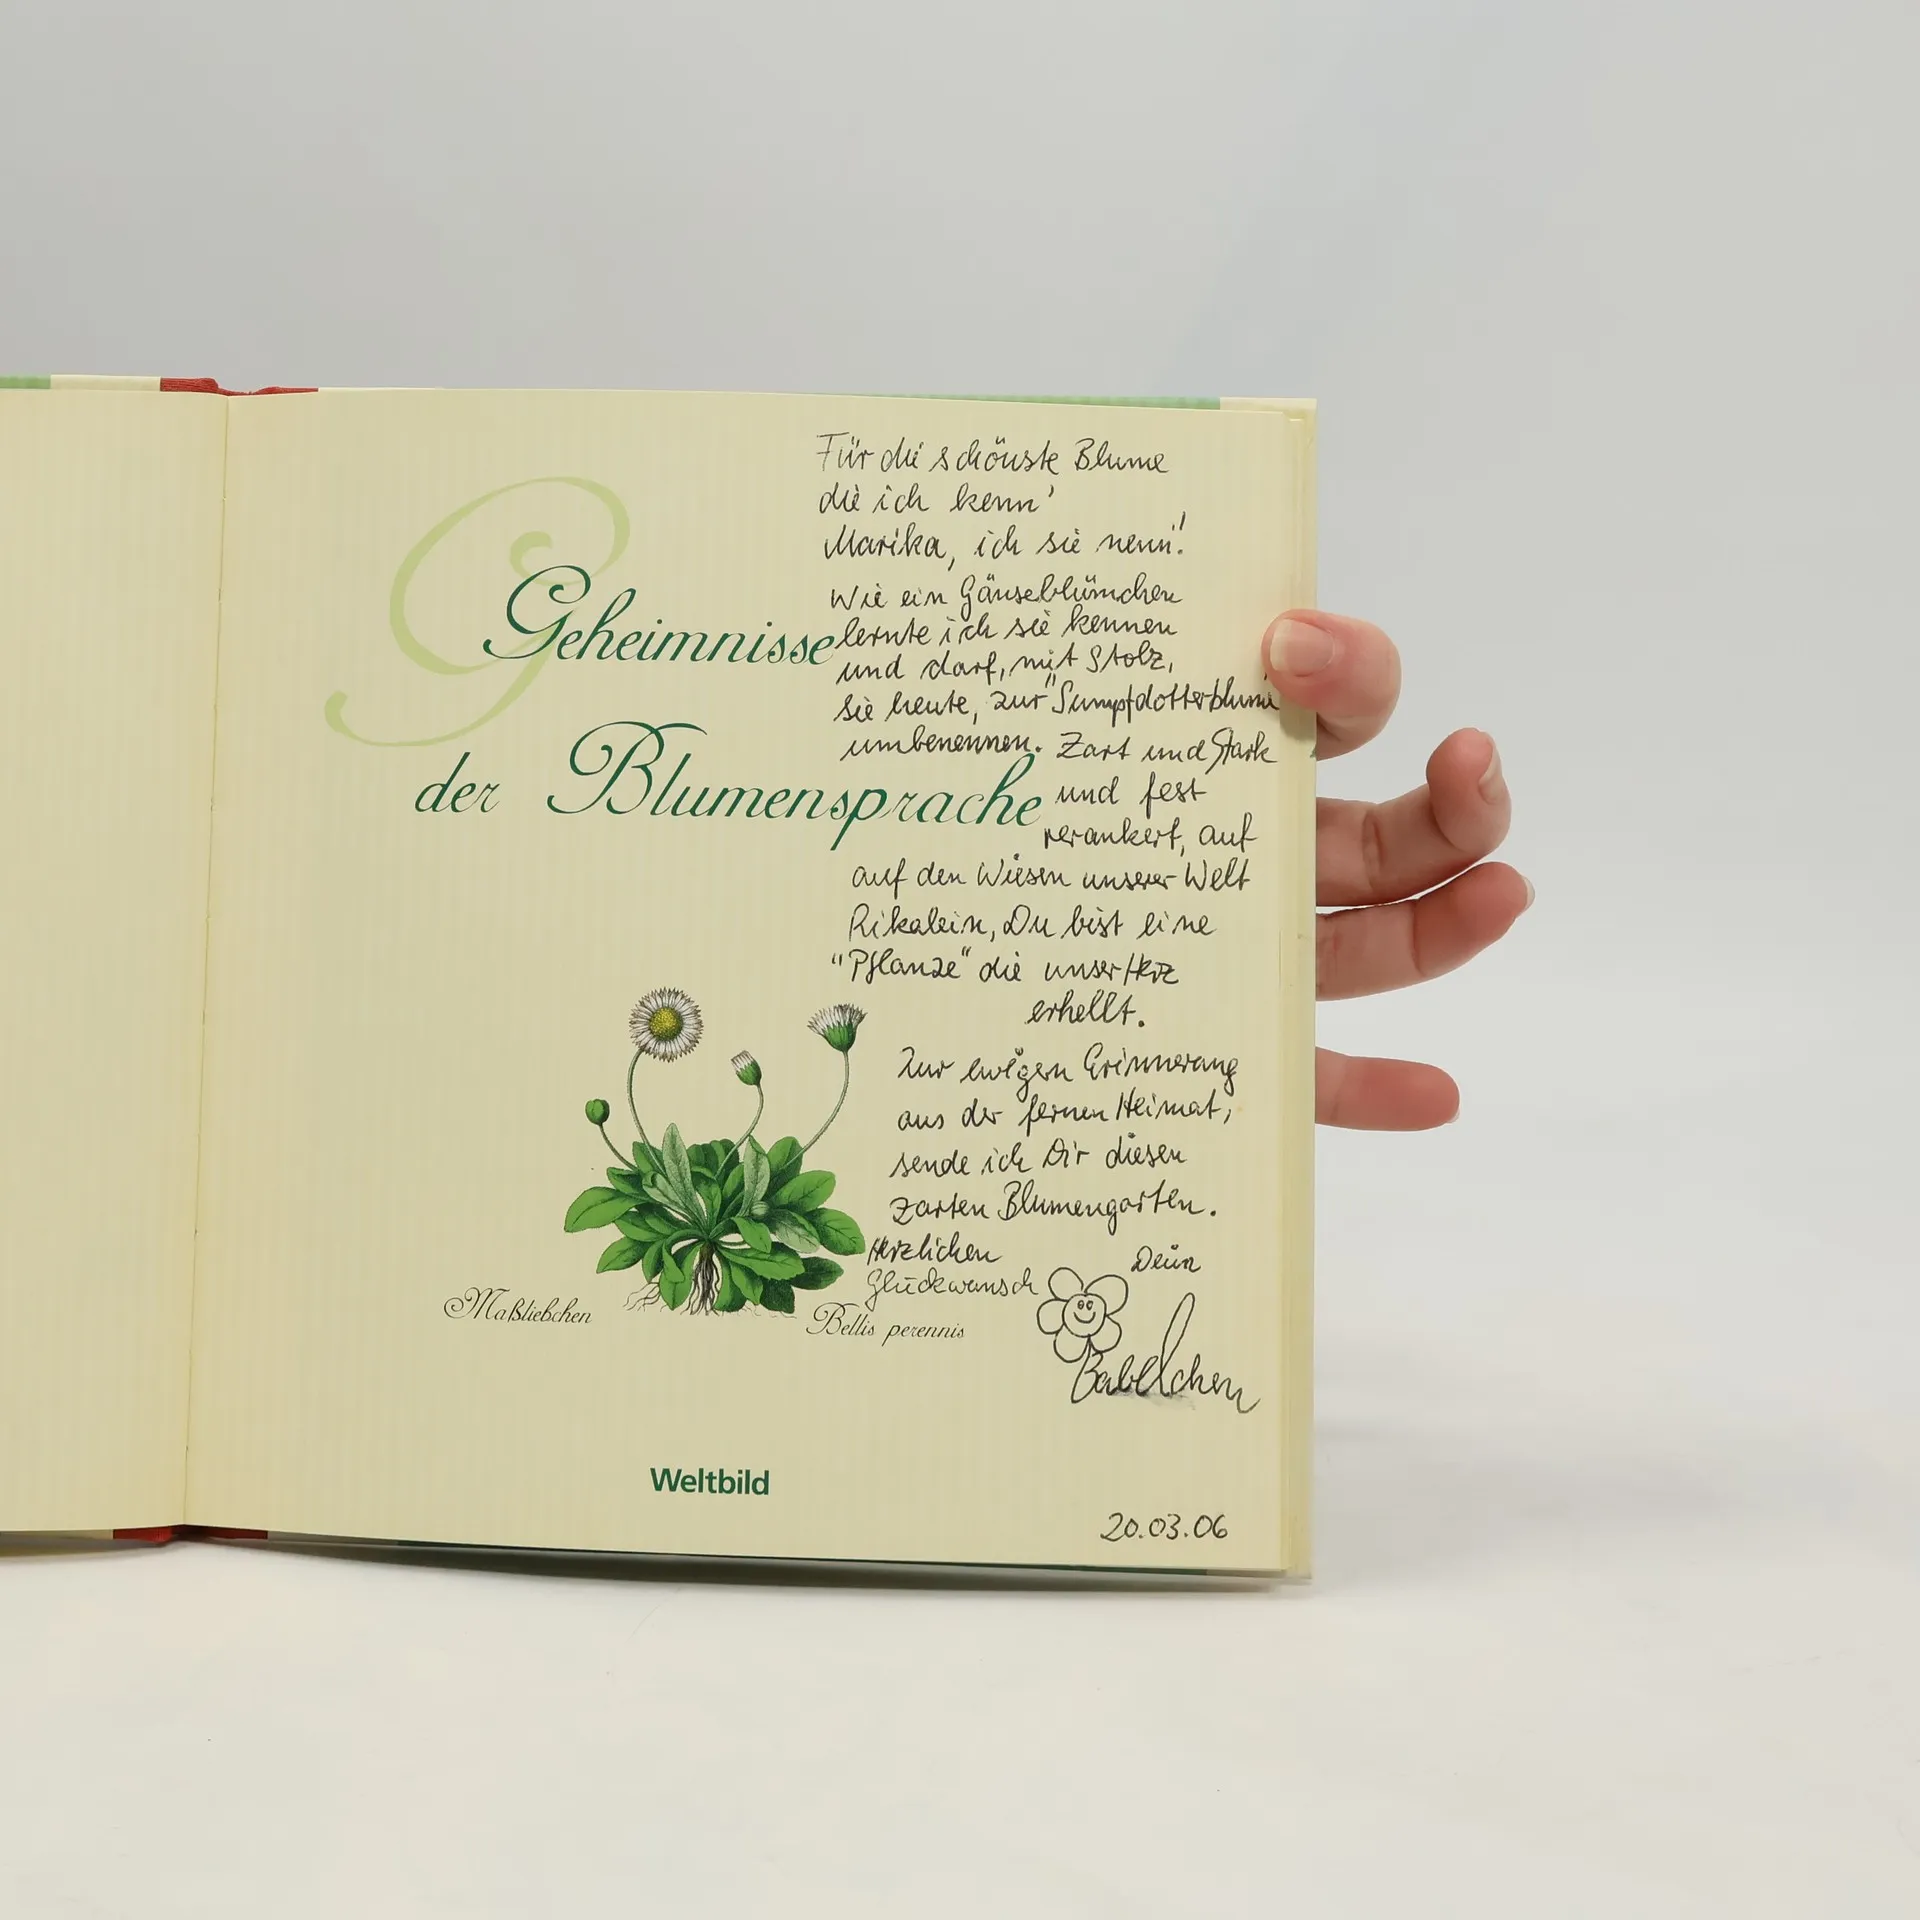 Für die schönste Blume
die ich kenn'
Marika, ich sie nenn'!
Wie ein Gänseblümchen
lernte ich sie kennen
und darf, mit Stolz,
sie heute, zur "Sumpfdotterblume"
umbenennen. Zart und stark
und fest
verankert, auf
auf den Wiesen unserer Welt
Rikalein, Du bist eine
"Pflanze" die unser Herz
erhellt.
Zur ewigen Erinnerung
aus der fernen Heimat,
sende ich Dir diesen
zarten Blumengarten.
Herzlichen
Glückwunsch
Dein
Babelchen
20.03.06
Geheimnisse
der Blumensprache
Maßliebchen
Bellis perennis
Weltbild